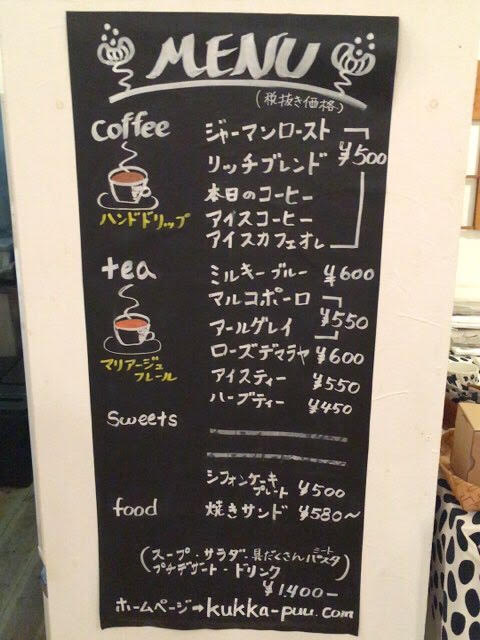 MENU
(税抜き価格)
coffee
ハンドドリップ
ジャーマンロースト
リッチブレンド
本日のコーヒー
アイスコーヒー
アイスカフェオレ
¥500
tea
マリアージュ
フレール
ミルキーブルー ¥600
マルコポーロ
アールグレイ
¥550
ローズデマラヤ ¥600
アイスティー ¥550
ハーブティー ¥450
Sweets
シフォンケーキ
プレート ¥500
food 焼きサンド ¥580〜
(スープ・サラダ・具だくさんミートパスタ
プチデザート・ドリンク)
¥1,400-
ホームページ→kukka-puu.com